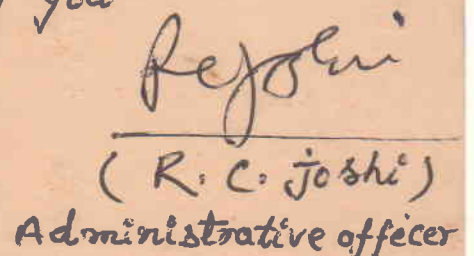 you
Rcjoshi
( R. C. joshi )
Administrative officer